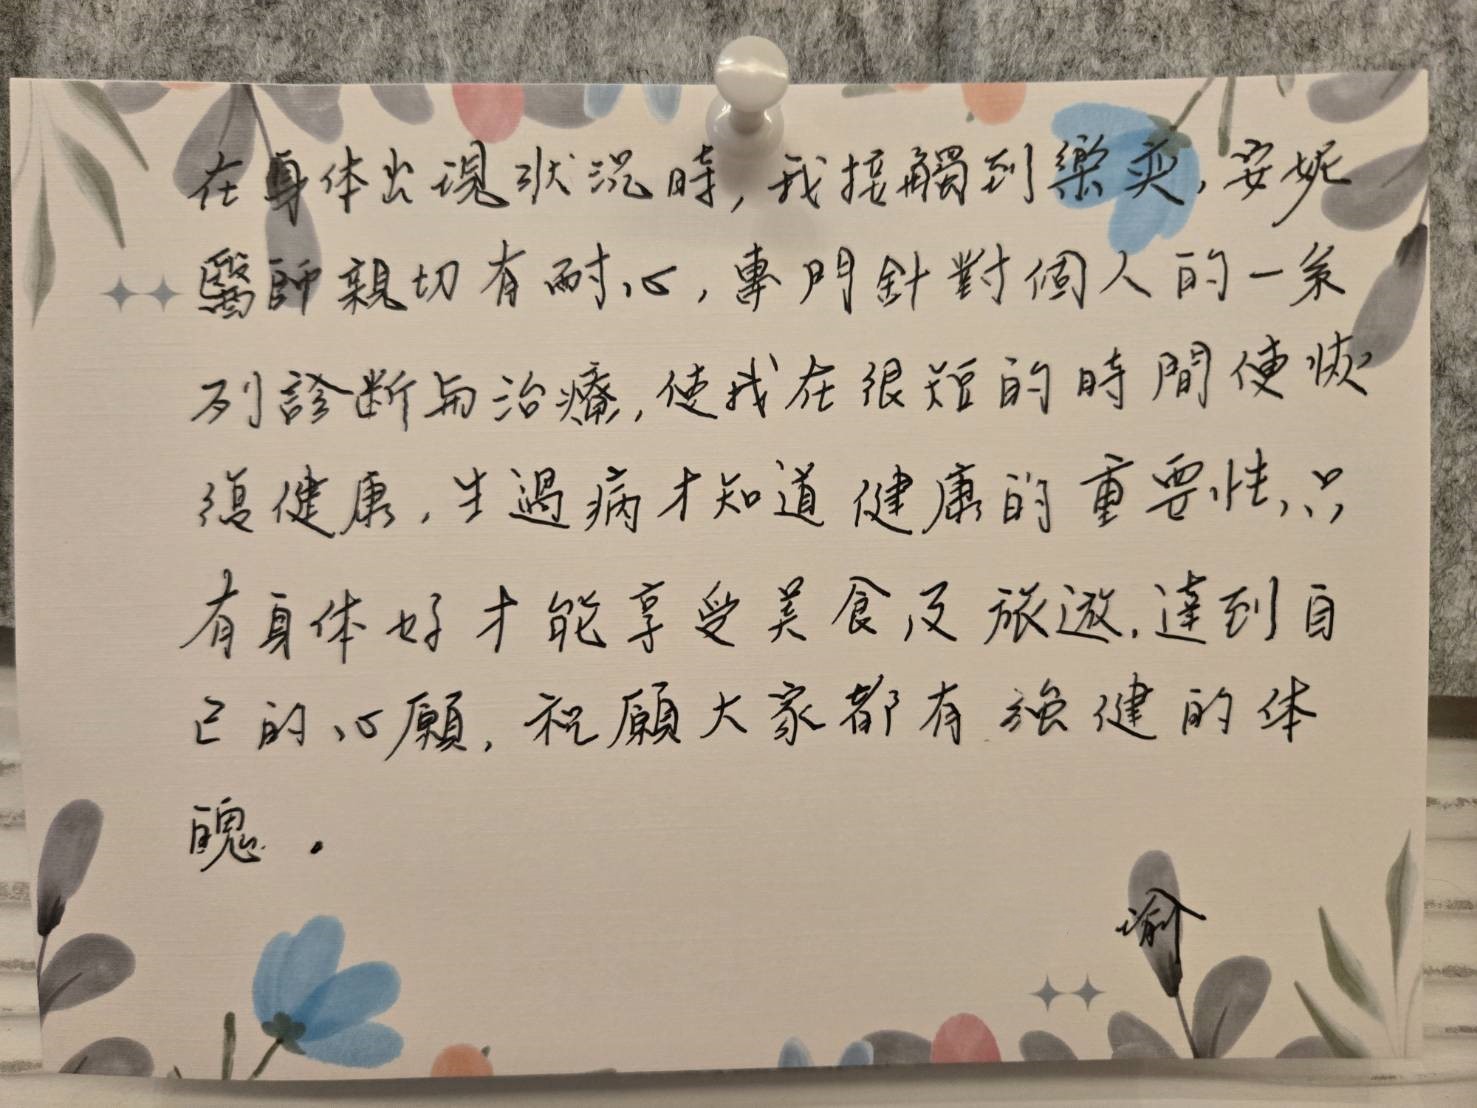 在身体出現状況時,我接觸到樂奕,安妮
醫師親切有耐心,專門針對個人的一系
列診斷与治療,使我在很短的時間便恢
復健康,生過病才知道健康的重要性,只
有身体好才能享受美食及旅遊,達到自
己的心願,祝願大家都有強健的体
魄.
瑜